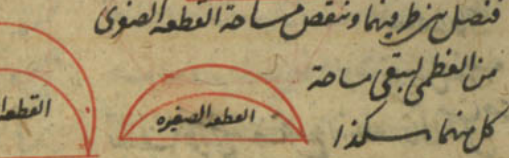 فنصل بين طرفيهما وننقص مساحة القطعة الصغرى
من العظمى ليبقى مساحة
كل منهما هكذا
القطعة الصغيره
القطعة